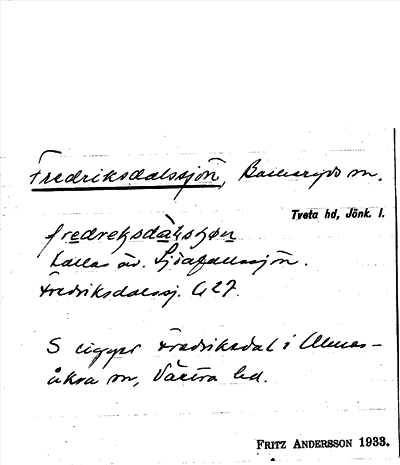 Fredriksdalssjön, Barkeryds sn.
Tveta hd, Jönk. l.
fredreksdàlsʃøn
kallas äv.
Fredriksdalssj. G 27.
S ligger Fredriksdal i Almes-
åkra sn, Västra hd.
FRITZ ANDERSSON 1933.